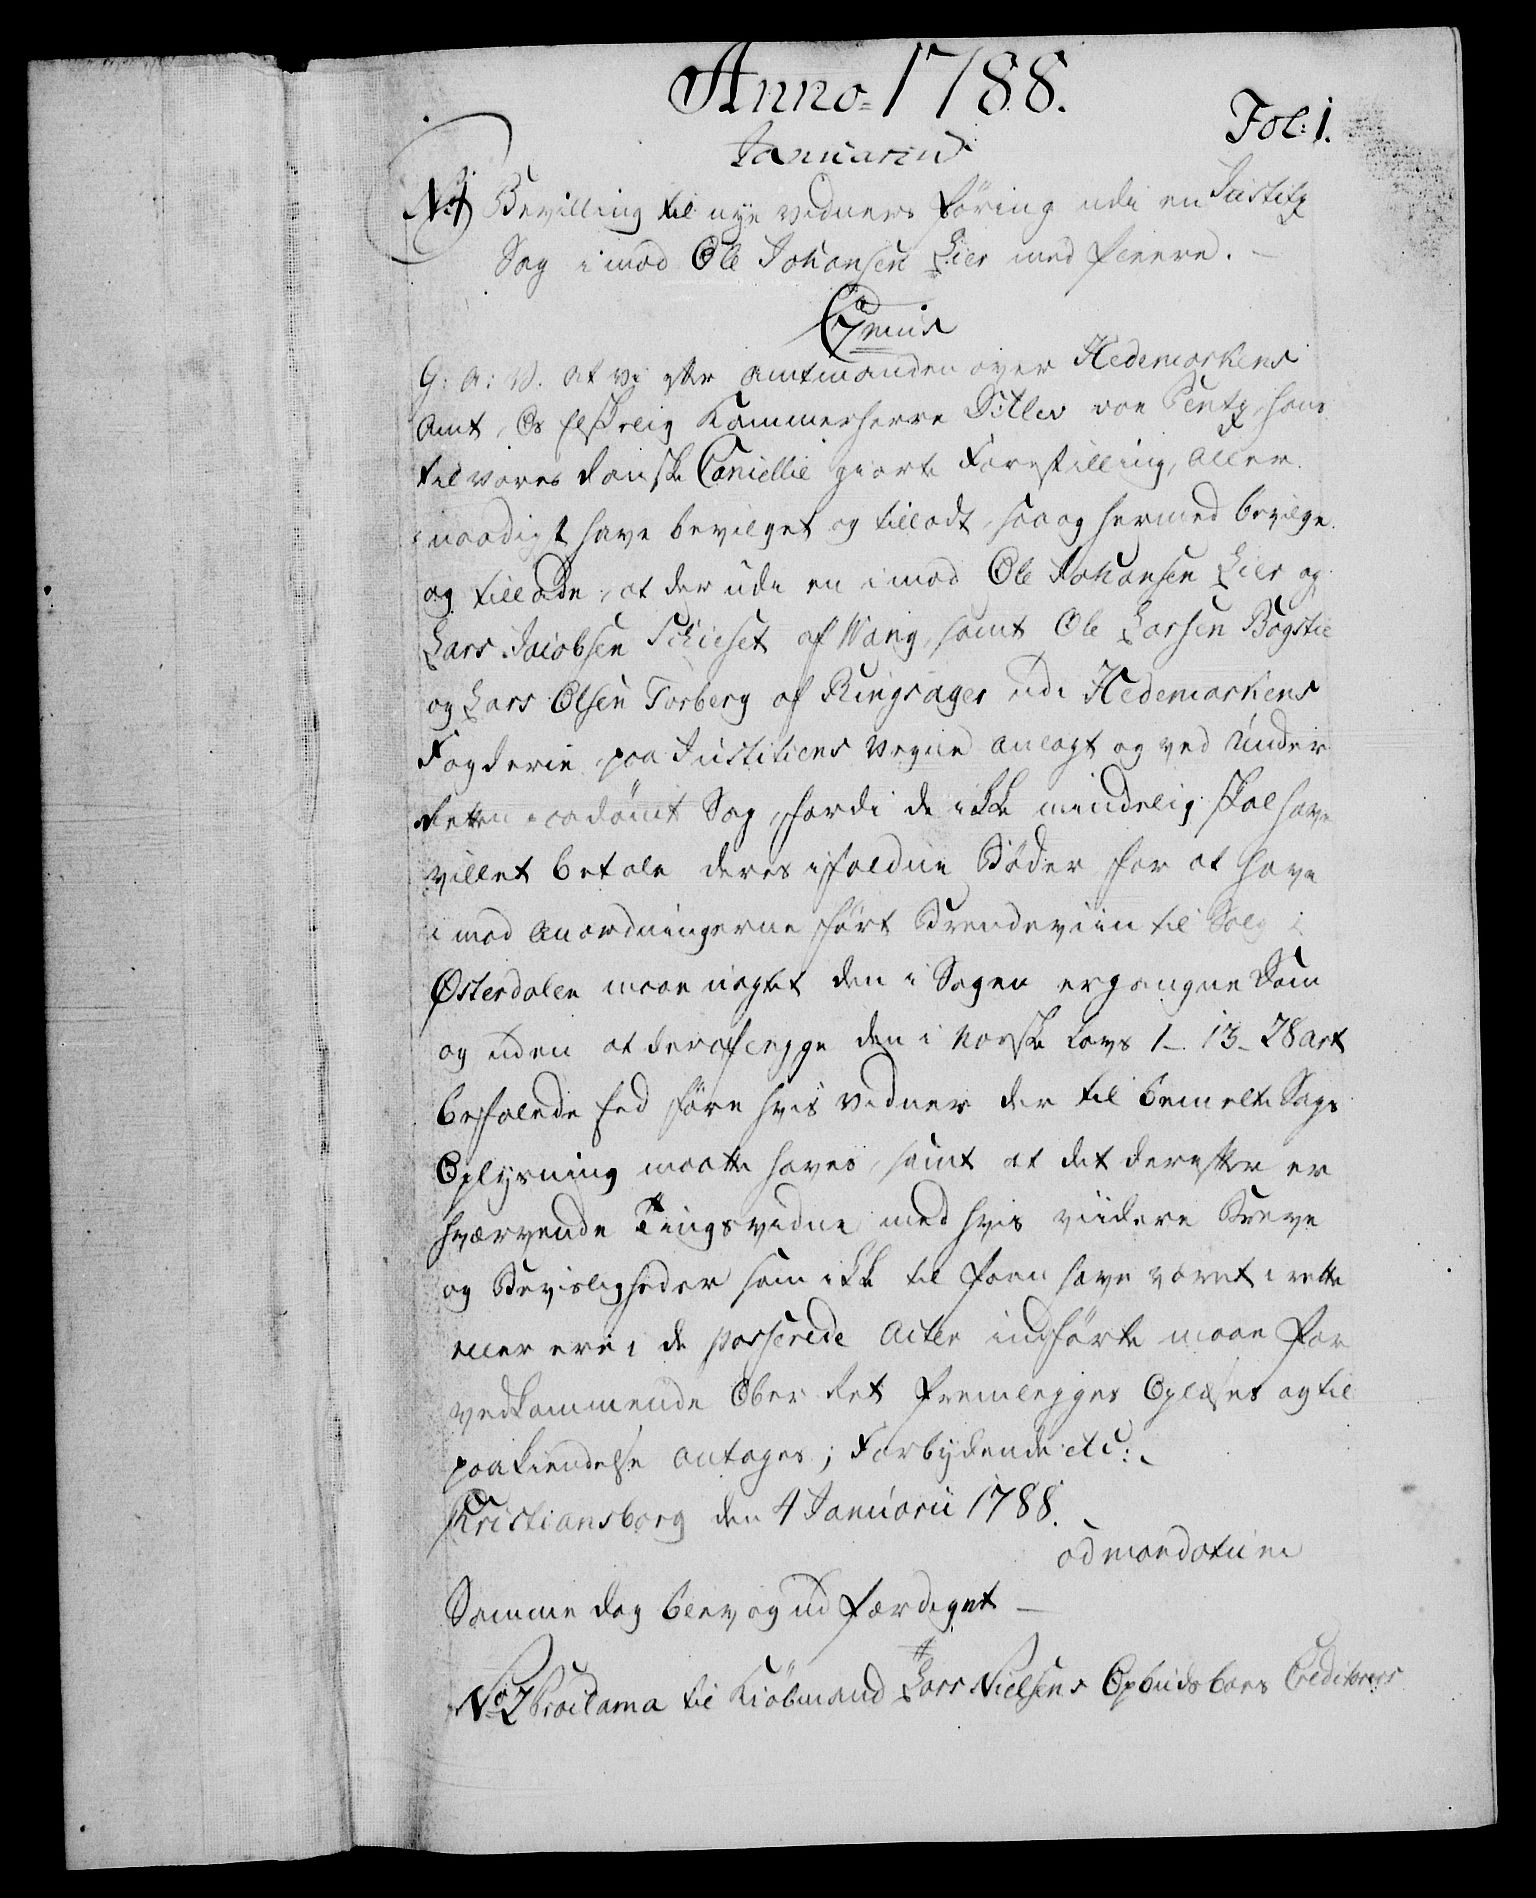 Anno 1788.
Fol: 1.
Januarius
No 1 Bevilling til nye vidners föring udi en Justitz
Sag imod Ole Johansen Lier med fleere. —
C7mus
G: A: V. at vi efter Amtmanden over Hedemarkens
Amt, Os elskelig Kammerherre Ditlev von Pentz, hans
til vores danske Cancellie giorte Forestilling, aller
naadigst have bevilget og tilladt, saa og hermed bevilge
og tillade, at der udi en imod Ole Johansen Lier og
Lars Jacobsen Schieset af Wang, samt Ole Larsen Bogstie
og Lars Olsen Torberg af Ringsager udi Hedemarkens
Fogderie paa Justitiens Vegne anlagt og ved Under
Retten paadömt Sag, fordi de ikke mindelig skal have
villet betale deres ifaldne Böder for at have
imod Anordningerne fört Brendeviin til Salg i
Østerdalen maae uagtet den i Sagen ergangne Dom
og uden at derafleggge den i Norske Lovs 1 - 13 - 28 Art
befalede Eed före hvis Vidner der til bemelte Sags
Oplysning maatte haves, samt at det derefter er
hvervende Tingsvidne med hvis viidere Breve
og Bevisligheder som ikke til forn have været i rette
eller ere i de passerede Acter indförte maae for
vedkommende Ober Ret fremlegges Oplæses og til
paakiendelse antages; Forbydende etc:
Christiansborg den 4 Januarii 1788.
ad mandatum
Samme dag blev og udfærdiget —
No 2 Proclama til Kiöbmand Lars Nielsens Opbuds boes Creditorers